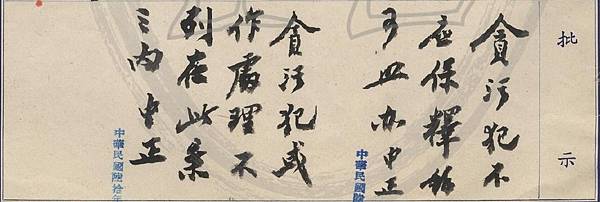 批示
貪污犯不
應保釋餘
可照办中正
中華民國陸
貪污犯或
作處理不
列在此案
之內中正
中華民國陸拾年